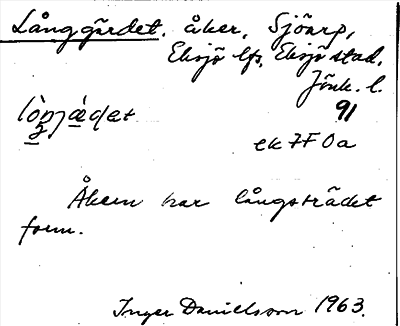 Långgärdet, åker, Sjöarp,
Eksjö lfs, Eksjö stad,
Jönk. l.
91
ek 7F 0a
Åkern har långsträckt
form.
Inger Danielsson 1963.